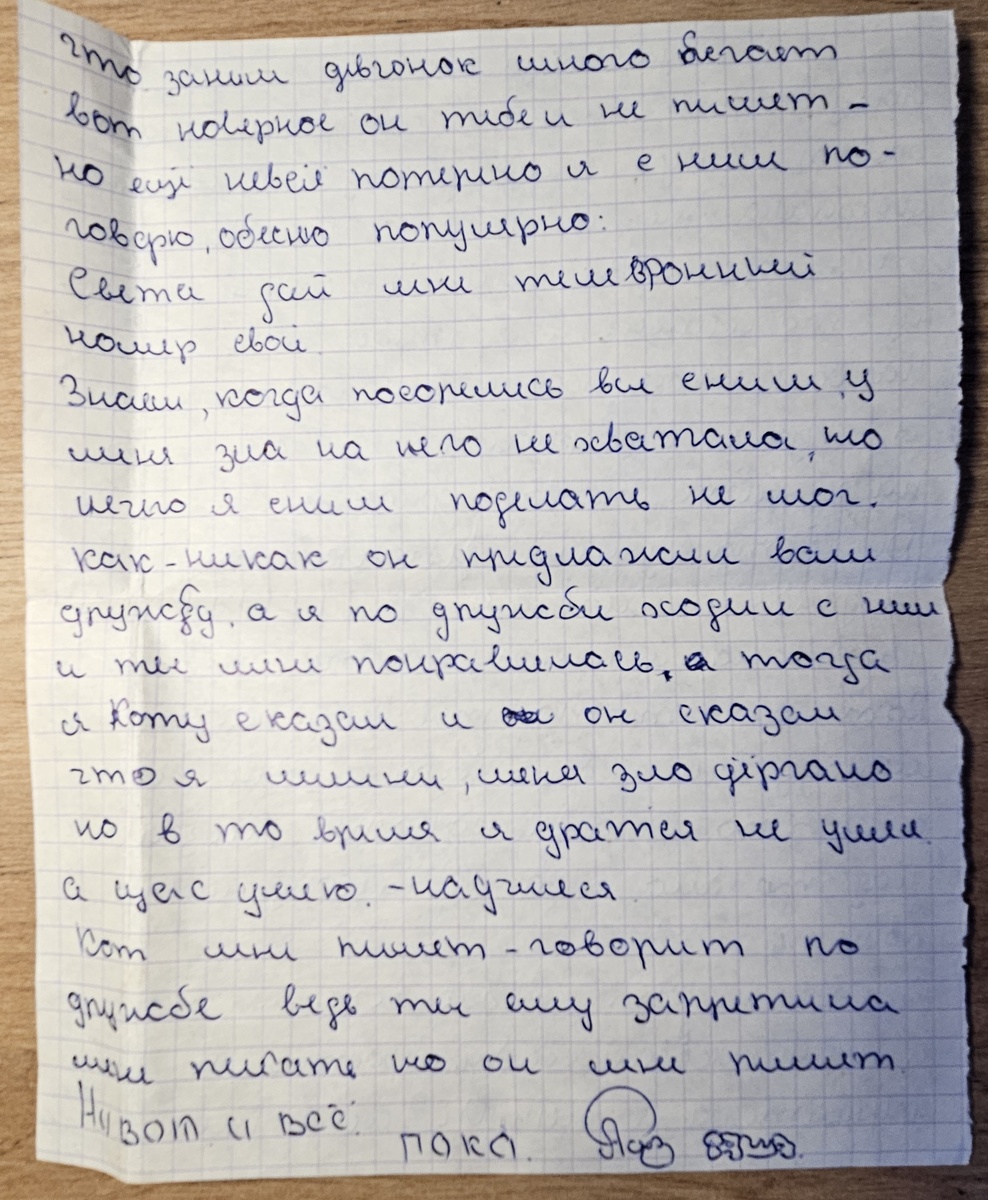 что заним дивчонок много бегает
вот новерное он тибе и не пишет -
но ещё невсё потеряно я с ним по-
говорю, обесню популярно:
Света дай мне телевронный
номер свой.
Знаеш, когда посорились вы сним, у
миня зла на него не хватала, но
нечго я сним поделать не мог.
как-никак он придлажил вам
дружбу, а я по дружби ходил с ним
и ты мне понравилась, а тогда
я Коту сказал и он сказал
что я лишни, меня зло дёргало
но в то время я дратся не умел
а щяс умею. - научился
Кот мне пишет - говорит по
дружбе ведь ты ему запретила
мне писать но он мне пишет
Ну вот и всё.
ПОКА.